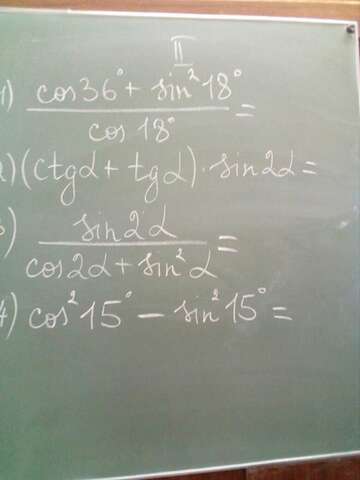 II
1) (cos36° + sin²18°) / cos18° =
2) (ctgα + tgα) · sin2α =
3) sin2α / (cos2α + sin²α) =
4) cos²15° − sin²15° =